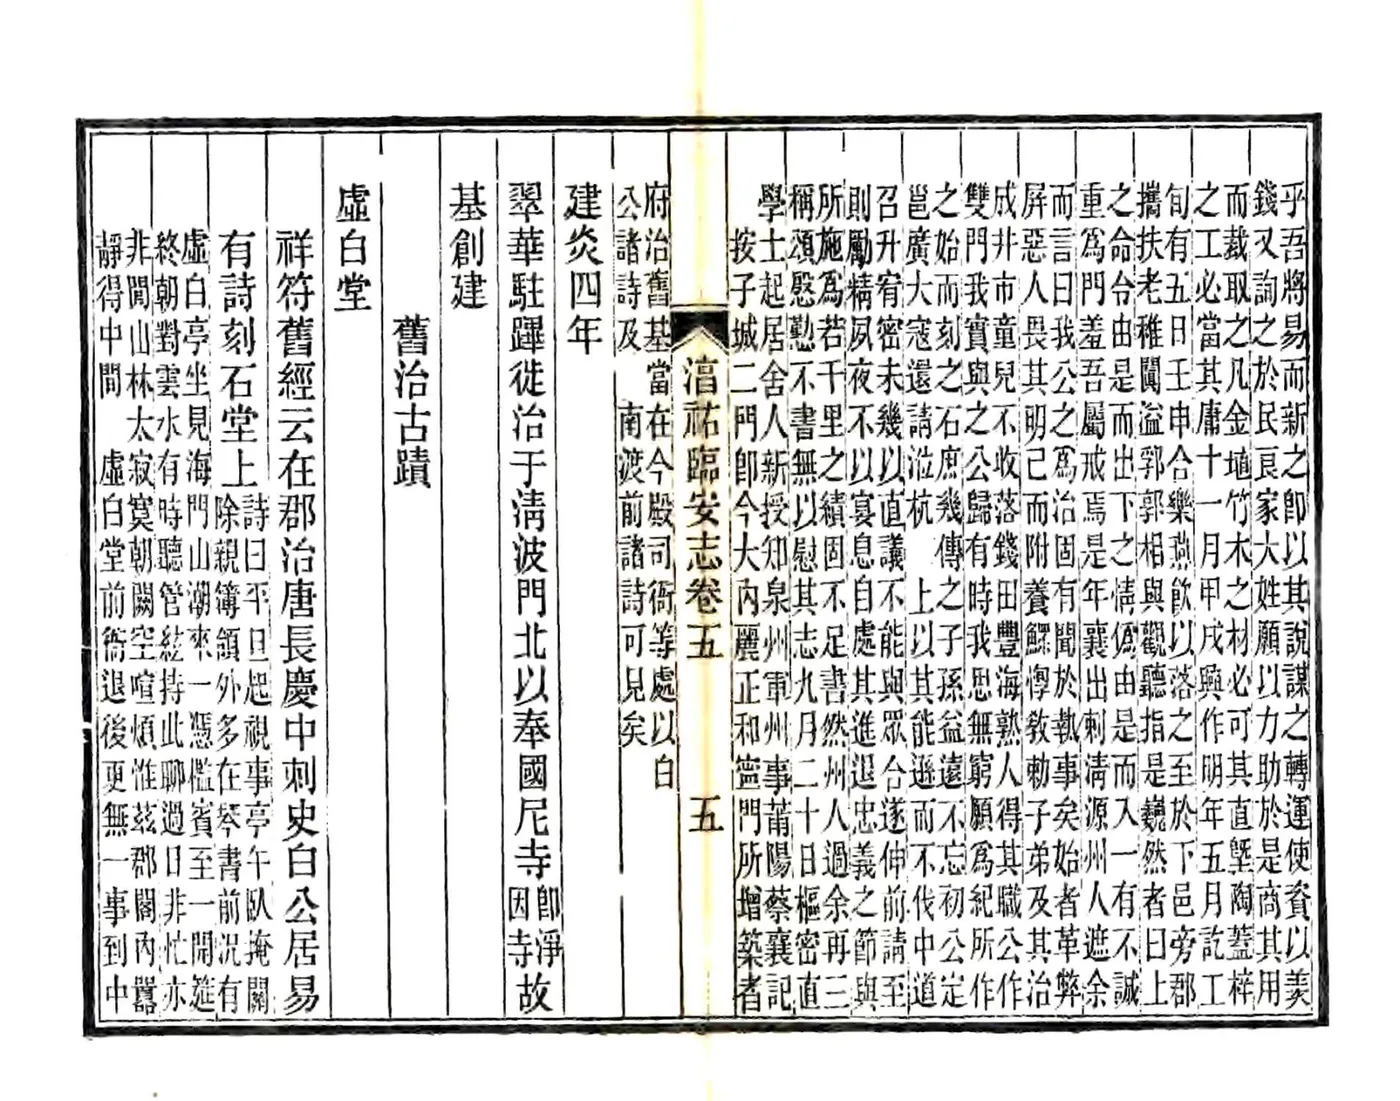 乎吾將易而新之卽以其說謀之轉運使資以羨
錢又詢之於民良家大姓願以力助於是商其用
而裁取之凡金埴竹木之材必可其直墼陶蓋梓
之工必當其庸十一月甲戌興作明年五月訖工
旬有五日壬申合樂燕飮以落之至於下邑旁郡
攜扶老稚闐溢郛郭相與觀聽指是巍然者曰上
之命令由是而出下之情僞由是而入一有不誠
重爲門羞吾屬戒焉是年襄出刺淸源州人遮余
而言曰我公之爲治固有聞於執事矣始者革弊
屏惡人畏其明己而附養鰥惸敎勅子弟及其治
成井市童兒不收落錢田豐海熟人得其職公作
雙門我實與之公歸有時我思無窮願爲紀所作
之始而刻之石庶幾傳之子孫益遠不忘初公定
邕廣大寇還請涖杭　上以其能遜而不伐中道
召升宥密未幾以直議不能與眾合遂伸前請至
則勵精夙夜不以宴息自處其進退忠義之節與
所施爲若千里之績固不足書然州人過余再三
稱頌慇懃不書無以慰其志九月二十日樞密直
學士起居舍人新授知泉州軍州事莆陽蔡襄記
按子城二門卽今大內麗正和寧門所增築者
淳祐臨安志卷五
五
府治舊基當在今殿司衙等處以白
公諸詩及　南渡前諸詩可見矣
建炎四年
翠華駐蹕徙治于淸波門北以奉國尼寺卽淨因寺故
基創建
舊治古蹟
虛白堂
祥符舊經云在郡治唐長慶中刺史白公居易
有詩刻石堂上詩曰平旦起視事亭午臥掩關
除親簿領外多在琴書前況有
虛白亭坐見海門山潮來一憑檻賓至一開筵
終朝對雲水有時聽管絃持此聊過日非忙亦
非閒山林太寂寞朝闕空喧煩惟茲郡閣內囂
靜得中間　虛白堂前衙退後更無一事到中